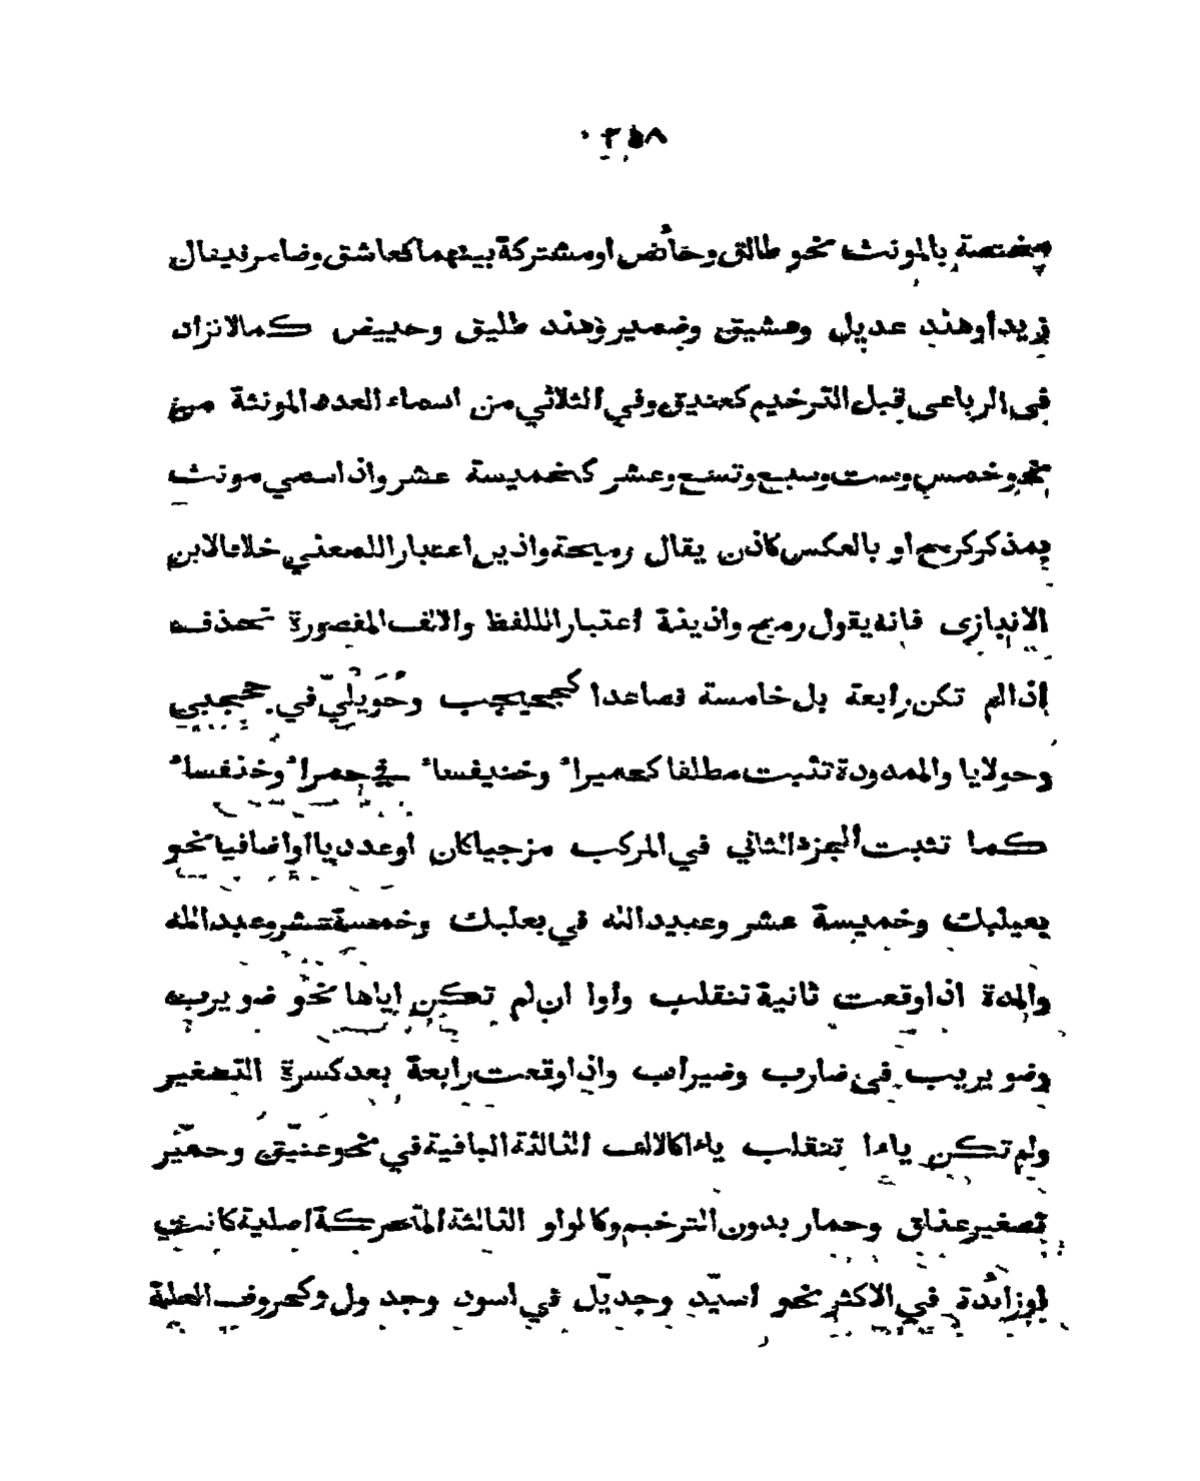 ٢٥٨
مختصة بالمونث نحو طالق وحائض او مشتركة بينهما كعاشق وضامر فيقال
زيد اوهند عديل وعشيق وضمير وهند طليق وحييض كما لا نزاد
في الرباعي قبل الترخيم كعنيق وفي الثلاثي من اسماء العدد المونثة من
نحو خمس وست وسبع وتسع وعشر كخميسة عشر واذا سمي مونث
بمذكر كرمح او بالعكس كاذن يقال رميحة واذين اعتبارا للمعني خلافا لابن
الانبازي فانه يقول رميح واذينة اعتبارا لللفظ والالف المقصورة تحذف
اذا لم تكن رابعة بل خامسة فصاعدا كجحيجب وحُوَيْلِيّ في جحجبي
وحولايا والممدودة تثبت مطلقا كحميراء وخنيفساء في حمراء وخنفساء
كما تثبت الجزء الثاني في المركب مزجيا كان اوعدديا او اضافيا نحو
بعيلبك وخميسة عشر وعبيد الله في بعلبك وخمسة عشر وعبد الله
والمدة اذا وقعت ثانية تنقلب واوا ان لم تكن اياها نحو ضويرب
وضويريب في ضارب وضيراب واذا وقعت رابعة بعد كسرة التصغير
ولم تكن ياءا تنقلب ياءا كالالف الثالثة الباقية في نحو عنيّق وحميّر
تصغير عناق وحمار بدون الترخيم وكالواو الثالثة المتحركة اصلية كانت
اوزائدة في الاكثر نحو اسيّد وجديّل في اسود وجدول وكحروف العلة